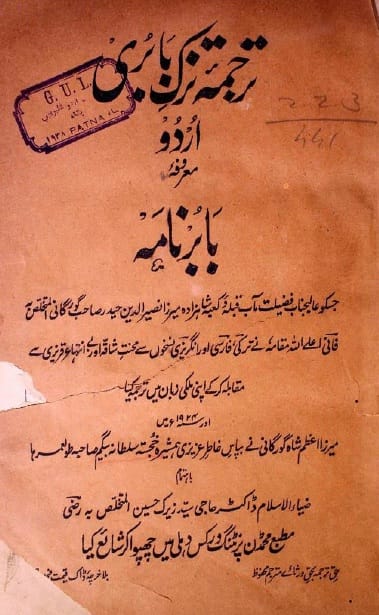 ترجمۂ تزک بابری
G. U. L.
۱۹۳۸ PATNA
223
441
اُردو
معروفہ
بابُر نامہ
جسکو عالیجناب فضیلت مآب قبلہ و کعبہ شاہزادہ میرزا نصیر الدین حیدر صاحب گورگانی المتخلص بہ
فانی اعلی اللہ مقامہ نے ترکی فارسی اور انگریزی نسخوں سے محنت شاقہ اور بے انتہا عرقریزی سے
مقابلہ کر کے اپنی ملکی زبان میں ترجمہ کیا
اور ۱۹۲۴ء میں
میرزا اعظم شاہ گورگانی نے بپاس خاطر عزیزی ہمشیرہ خجستہ سلطانہ بیگم صاحبہ طول عمرہا
باہتمام
ضیاء الاسلام ڈاکٹر حاجی سید زیرک حسین المتخلص بہ رضی
مطبع محمڈن پرنٹنگ ورکس دہلی میں چھپوا کر شائع کیا
حق ترجمہ بحق ورثائے مترجم محفوظ
بلا خرچہ ڈاک قیمت